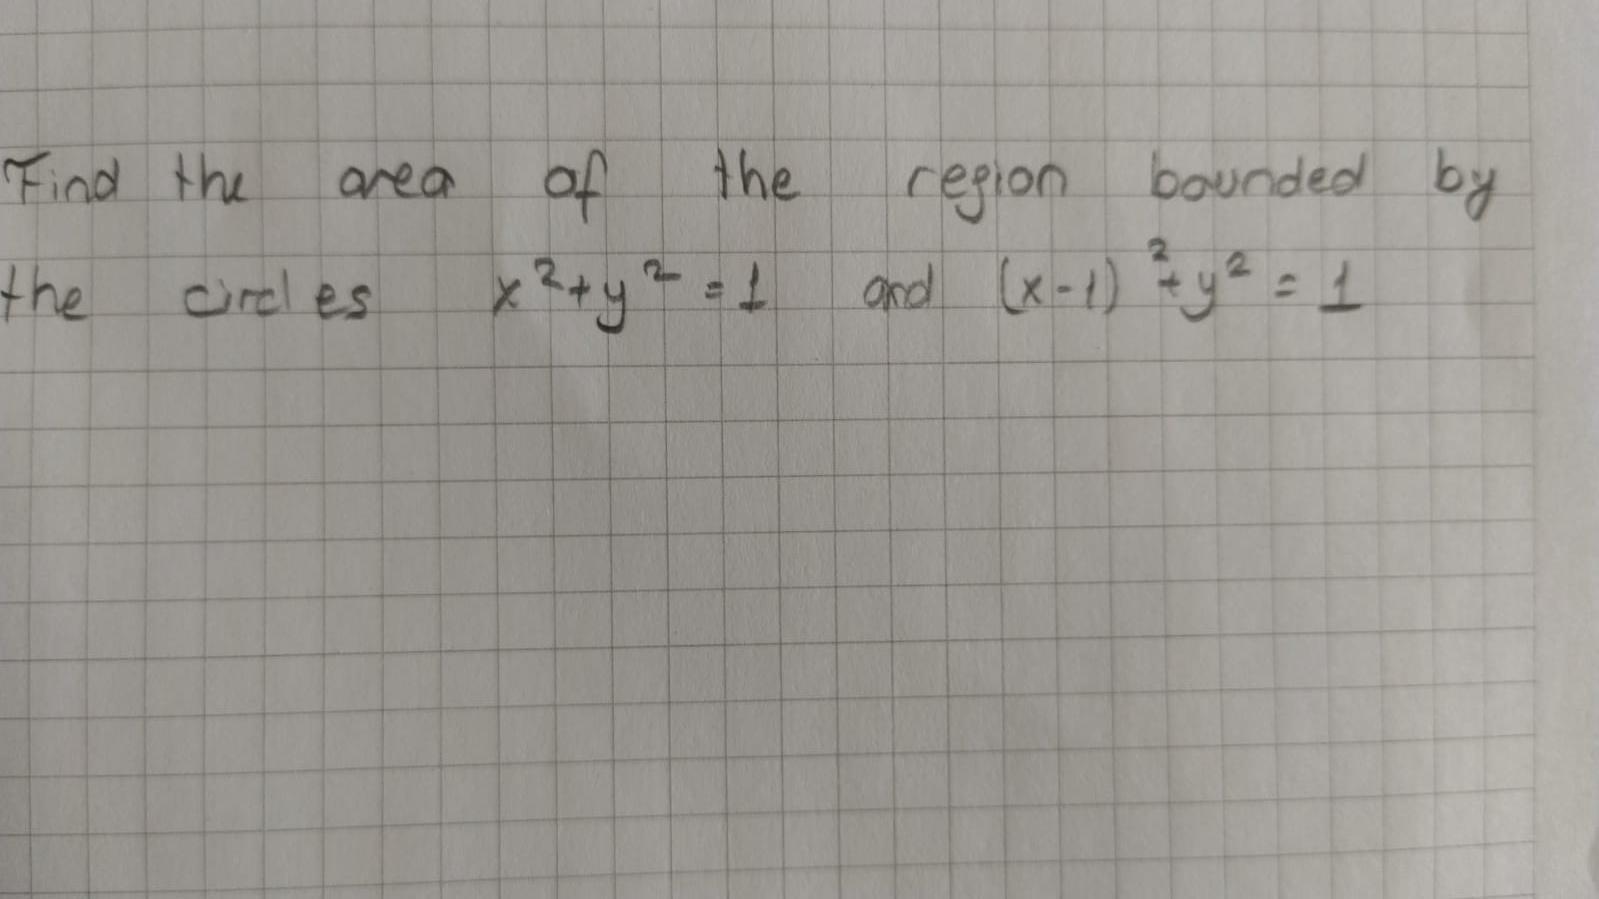 Find the area of the region bounded by
the circles x²+y²=1 and (x-1)²+y²=1